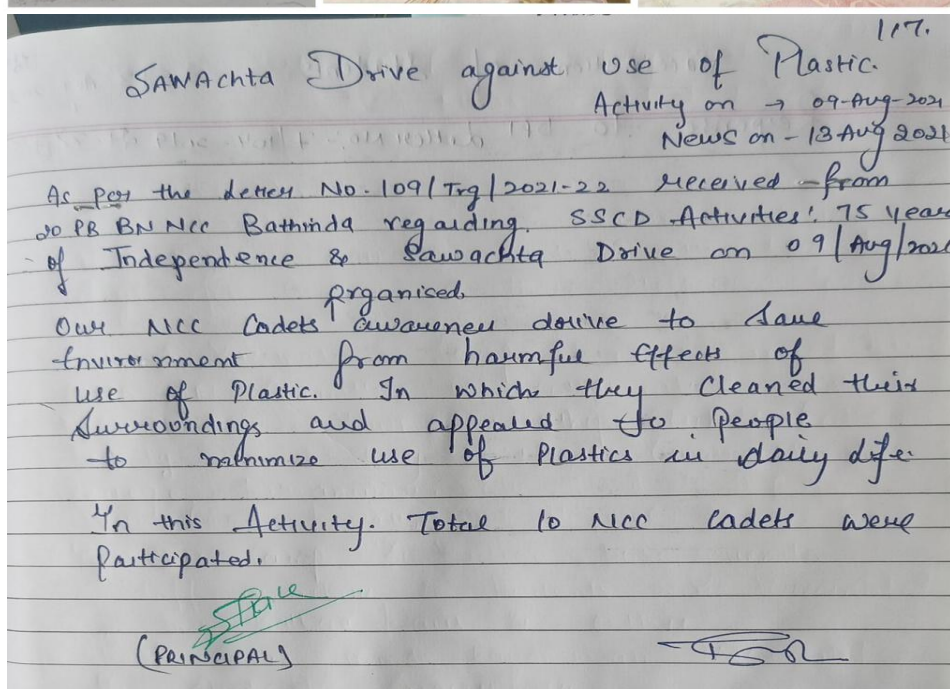 117.
SAWAchta Drive against use of Plastic.
Activity on → 09-Aug-2021
News on - 13 Aug 2021
As per the letter No. 109/Trg/2021-22 received from
20 PB BN NCC Bathinda regarding. SSCD Activities'. 75 years
of Independence & Sawachta Drive on 09/Aug/2021
organised
Our NCC Cadets awareness drive to save
Environment from harmful Effects of
use of Plastic. In which they cleaned their
surroundings and appealed to people
to minimize use of Plastics in daily life.
In this Activity. Total 10 NCC cadets were
Participated.
(PRINCIPAL)